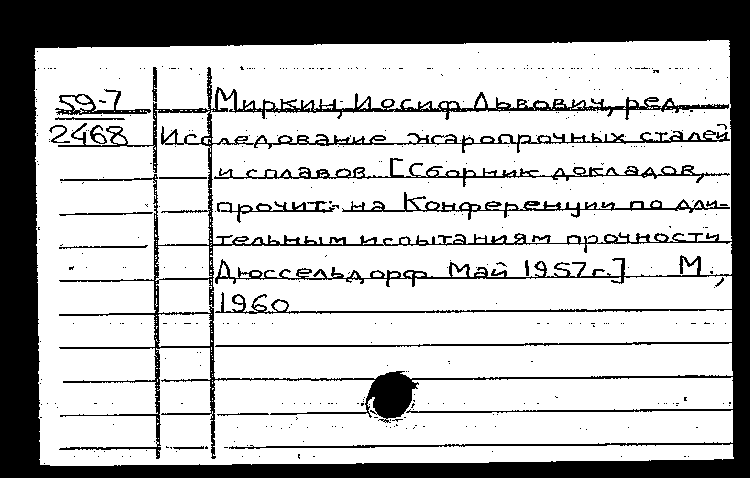 59-7 Миркин, Иосиф Львович, ред.
2468 Исследование жаропрочных сталей
и сплавов. [Сборник докладов,
прочит. на Конференции по дли-
тельным испытаниям прочности
Дюссельдорф Май 1957г.] М.,
1960